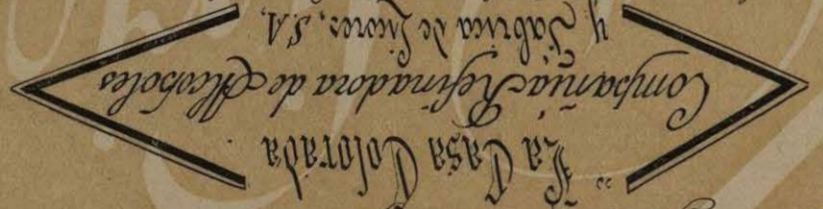 "La Casa Colorada
Compañia Refinadora de Alcoholes
y Fabrica de Licores, S.A.